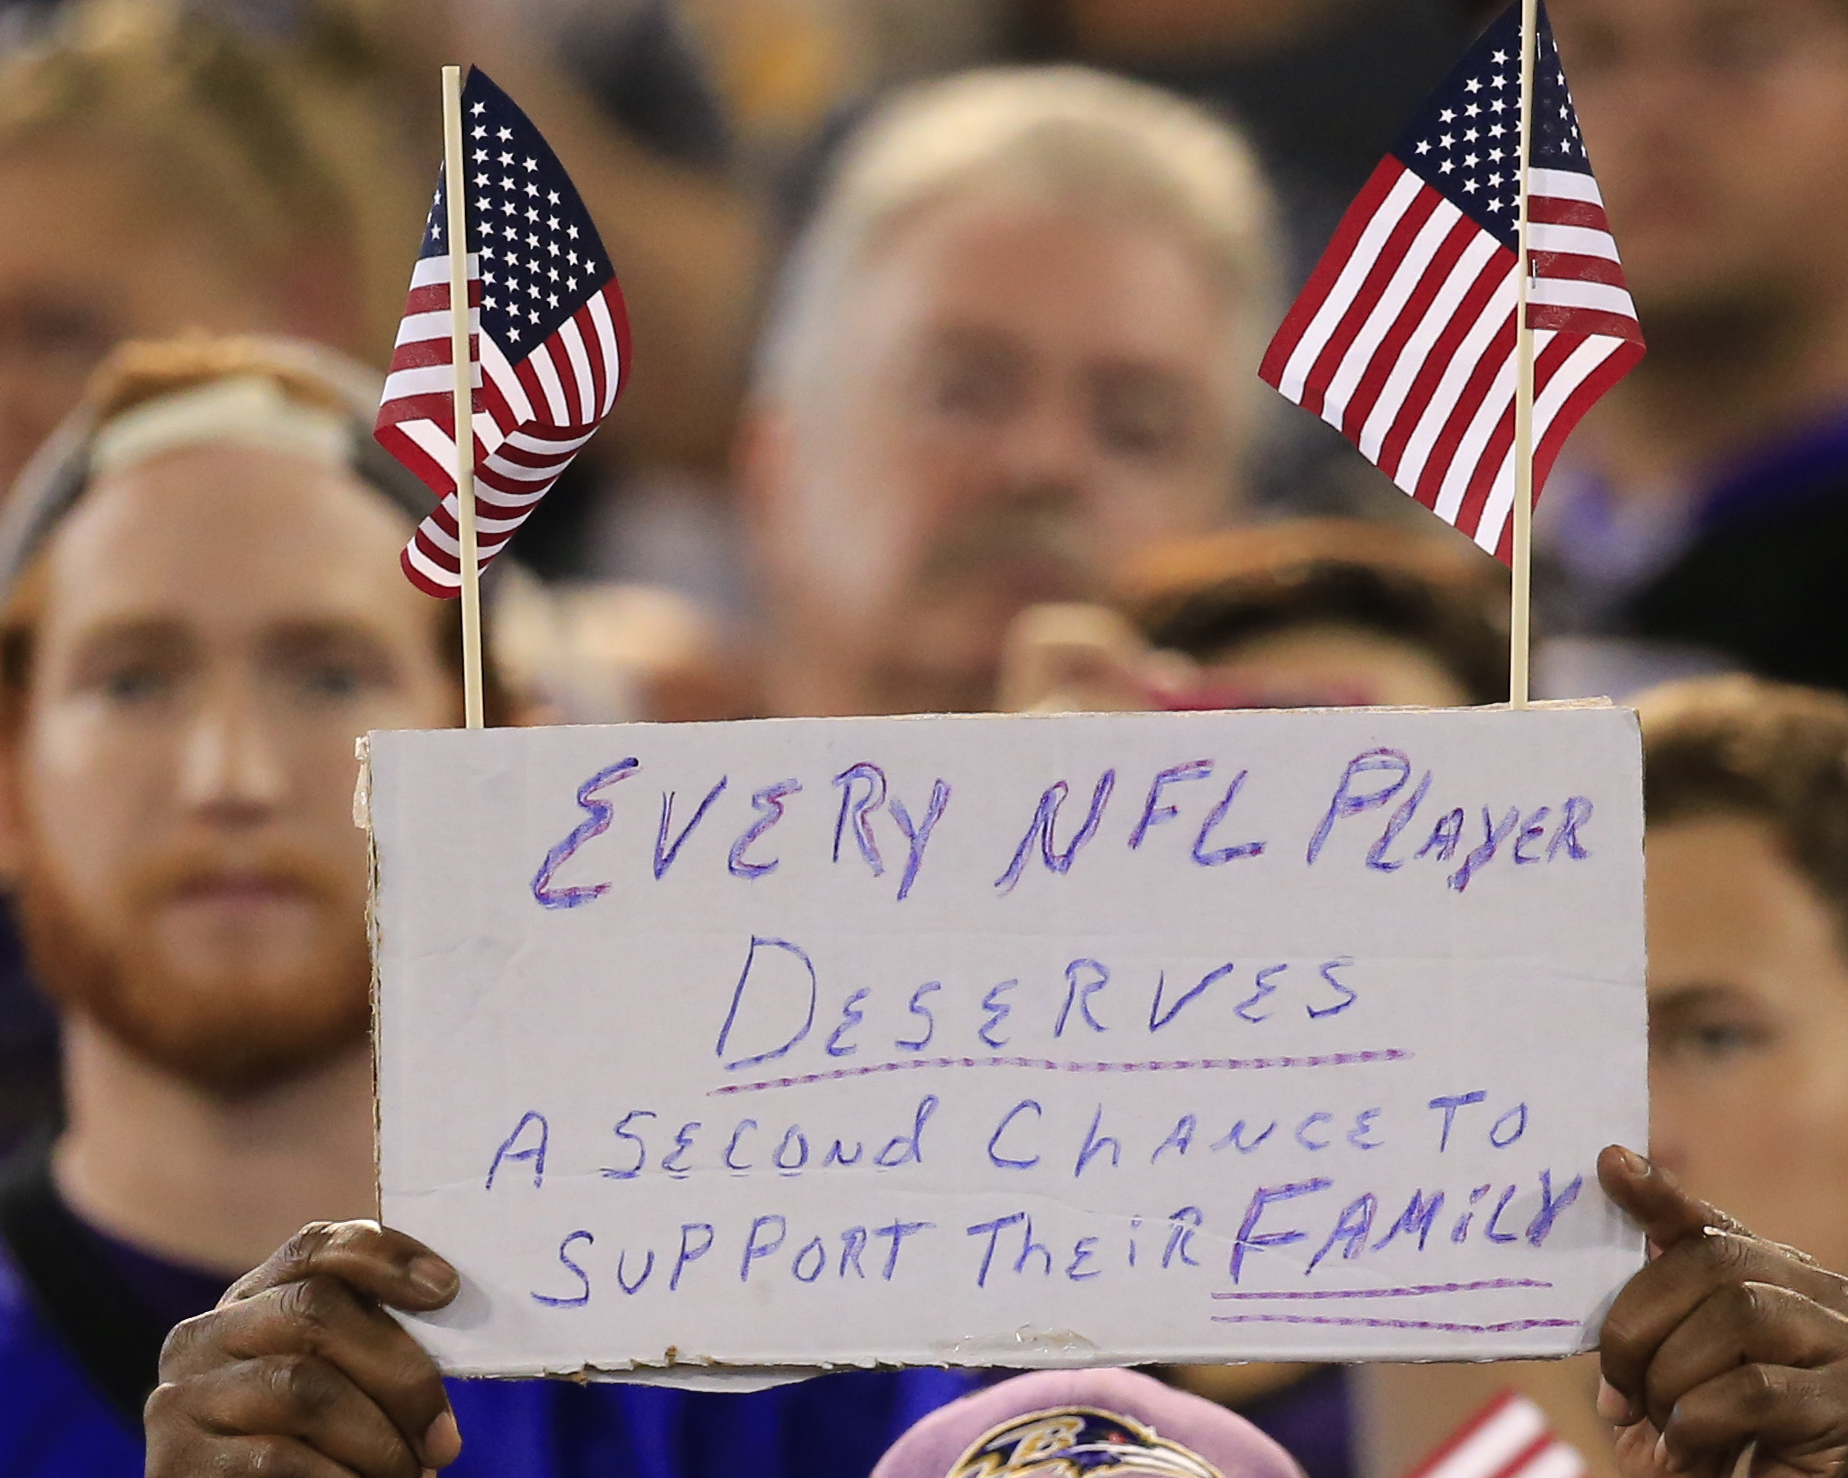 EVERY NFL PLAYER
DESERVES
A SECOND ChANCE TO
SUPPORT ThEiR FAMiLY
B